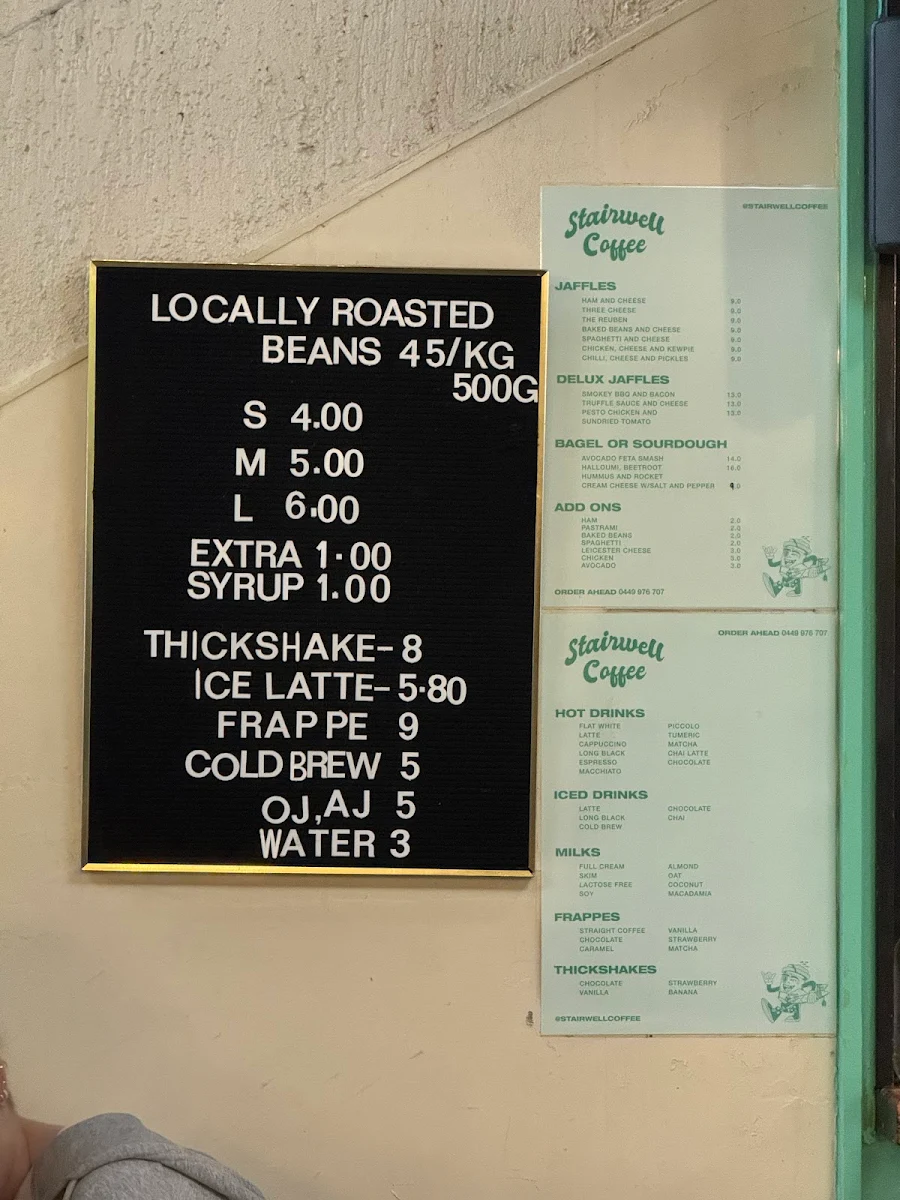 LOCALLY ROASTED
BEANS 45/KG
500G
S 4.00
M 5.00
L 6.00
EXTRA 1.00
SYRUP 1.00
THICKSHAKE-8
ICE LATTE-5.80
FRAPPE 9
COLD BREW 5
OJ,AJ 5
WATER 3
Stairwell
Coffee
@STAIRWELLCOFFEE
JAFFLES
HAM AND CHEESE 9.0
THREE CHEESE 9.0
THE REUBEN 9.0
BAKED BEANS AND CHEESE 9.0
SPAGHETTI AND CHEESE 9.0
CHICKEN, CHEESE AND KEWPIE 9.0
CHILLI, CHEESE AND PICKLES 9.0
DELUX JAFFLES
SMOKEY BBQ AND BACON 13.0
TRUFFLE SAUCE AND CHEESE 13.0
PESTO CHICKEN AND 13.0
SUNDRIED TOMATO
BAGEL OR SOURDOUGH
AVOCADO FETA SMASH 14.0
HALLOUMI, BEETROOT 16.0
HUMMUS AND ROCKET
CREAM CHEESE W/SALT AND PEPPER 9.0
ADD ONS
HAM 2.0
PASTRAMI 2.0
BAKED BEANS 2.0
SPAGHETTI 2.0
LEICESTER CHEESE 3.0
CHICKEN 3.0
AVOCADO 3.0
ORDER AHEAD 0449 976 707
Stairwell
Coffee
ORDER AHEAD 0449 976 707
HOT DRINKS
FLAT WHITE PICCOLO
LATTE TUMERIC
CAPPUCCINO MATCHA
LONG BLACK CHAI LATTE
ESPRESSO CHOCOLATE
MACCHIATO
ICED DRINKS
LATTE CHOCOLATE
LONG BLACK CHAI
COLD BREW
MILKS
FULL CREAM ALMOND
SKIM OAT
LACTOSE FREE COCONUT
SOY MACADAMIA
FRAPPES
STRAIGHT COFFEE VANILLA
CHOCOLATE STRAWBERRY
CARAMEL MATCHA
THICKSHAKES
CHOCOLATE STRAWBERRY
VANILLA BANANA
@STAIRWELLCOFFEE